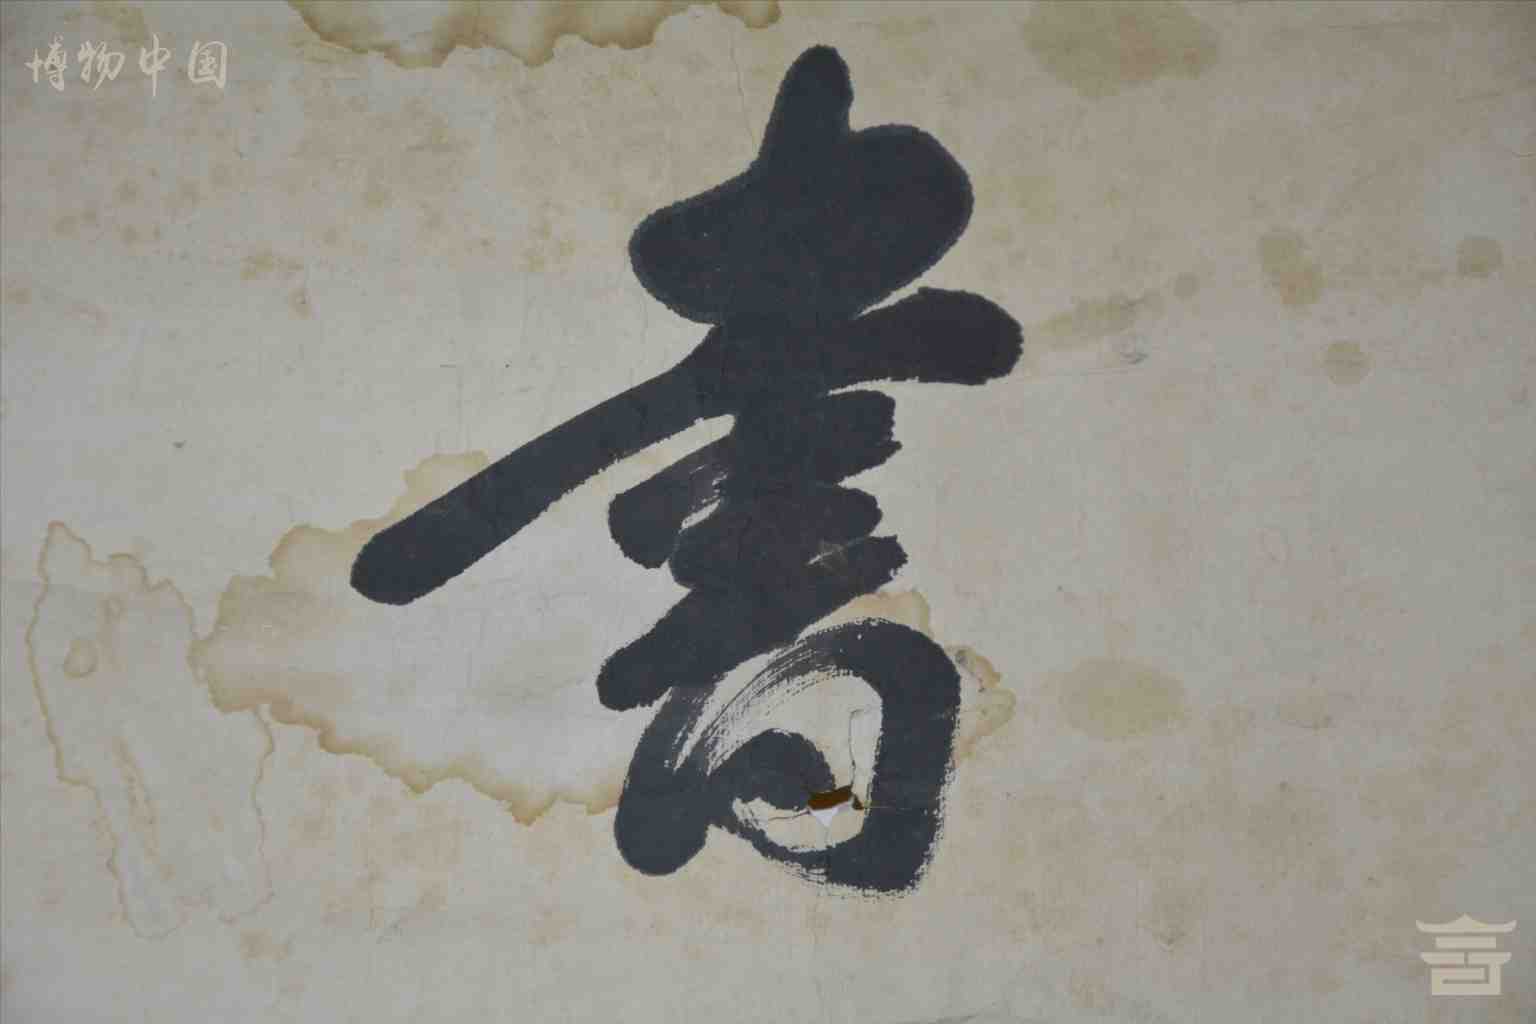 博物中国
書